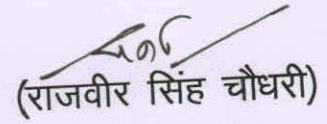 (राजवीर सिंह चौधरी)